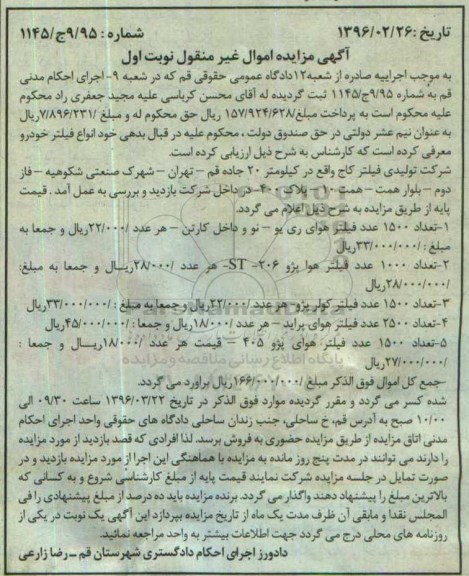 تاریخ :۱۳۹۶/۰۲/۲۶ شماره : ۹/۹۵ج/۱۱۴۵
آگهی مزایده اموال غیر منقول نوبت اول
به موجب اجراییه صادره از شعبه۱۲دادگاه عمومی حقوقی قم که در شعبه ۹- اجرای احکام مدنی
قم به شماره ۹/۹۵ج/۱۱۴۵ ثبت گردیده له آقای محسن کرباسی علیه مجید جعفری راد محکوم
علیه محکوم است به پرداخت مبلغ/۱۵۷/۹۲۴/۶۲۸ ریال حق محکوم له و مبلغ /۷/۸۹۶/۲۳۱ریال
به عنوان نیم عشر دولتی در حق صندوق دولت ، محکوم علیه در قبال بدهی خود انواع فیلتر خودرو
معرفی کرده است که کارشناس به شرح ذیل ارزیابی کرده است.
شرکت تولیدی فیلتر کاج واقع در کیلومتر ۲۰ جاده قم - تهران - شهرک صنعتی شکوهیه - فاز
دوم - بلوار همت - همت ۱۰ - پلاک ۴۰۰- در داخل شرکت بازدید و بررسی به عمل آمد . قیمت
پایه از طریق مزایده به شرح ذیل اعلام می گردد.
۱-تعداد ۱۵۰۰ عدد فیلتر هوای ری یو - نو و داخل کارتن - هر عدد /۲۲/۰۰۰ریال و جمعا به
مبلغ : /۳۳/۰۰۰/۰۰۰ریال
۲-تعداد ۱۰۰۰ عدد فیلتر هوا پژو ۲۰۶- ST- هر عدد /۲۸/۰۰۰ریال و جمعا به مبلغ:
/۲۸/۰۰۰/۰۰۰ریال
۳-تعداد ۱۵۰۰ عدد فیلتر کولر پژو- هر عدد /۲۲/۰۰۰ریال و جمعا به مبلغ : /۳۳/۰۰۰/۰۰۰ریال
۴-تعداد ۲۵۰۰ عدد فیلتر هوای پراید - هر عدد /۱۸/۰۰۰ریال و جمعا: /۴۵/۰۰۰/۰۰۰ریال
۵-تعداد ۱۵۰۰ عدد فیلتر هوای پژو ۴۰۵ - قیمت هر عدد /۱۸/۰۰۰ریال و جمعا :
/۲۷/۰۰۰/۰۰۰ریال
-جمع کل اموال فوق الذکر مبلغ /۱۶۶/۰۰۰/۰۰۰ریال براورد می گردد.
شده کسر می گردد و مقرر گردیده موارد فوق الذکر در تاریخ ۱۳۹۶/۰۳/۲۲ ساعت ۰۹/۳۰ الی
۱۰/۰۰ صبح به آدرس قم، خ ساحلی، جنب زندان ساحلی دادگاه های حقوقی واحد اجرای احکام
مدنی اتاق مزایده از طریق مزایده حضوری به فروش برسد. لذا افرادی که قصد بازدید از مورد مزایده
را دارند می توانند در مدت پنج روز مانده به مزایده با هماهنگی این اجرا از مورد مزایده بازدید و در
صورت تمایل در جلسه مزایده شرکت نمایند قیمت پایه از مبلغ کارشناسی شروع و به کسانی که
بالاترین مبلغ را پیشنهاد دهند واگذار می گردد. برنده مزایده باید ده درصد از مبلغ پیشنهادی را فی
المجلس نقدا و مابقی آن ظرف مدت یک ماه از تاریخ مزایده بپردازد این آگهی یک نوبت در یکی از
روزنامه های محلی درج می گردد جهت اطلاعات بیشتر به واحد مراجعه نمائید.
دادورز اجرای احکام دادگستری شهرستان قم ـ رضا زارعی